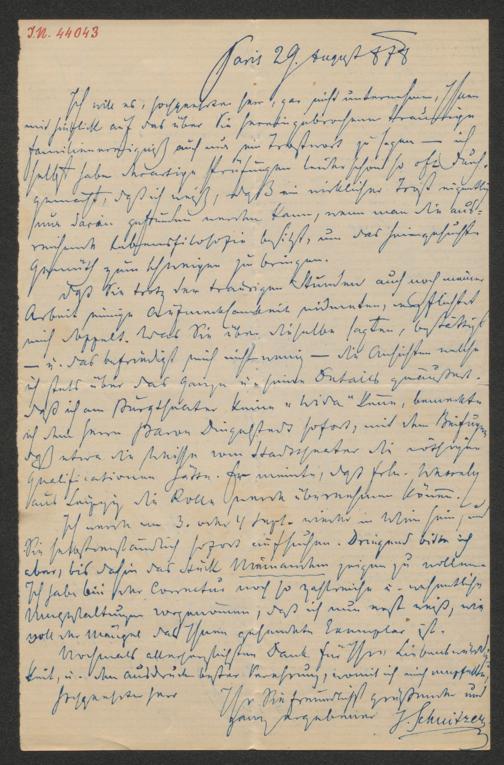 I.N. 44043
Paris 29 August 878
Ich will es, hochgeehrter Herr, gar nicht unternehmen, Ihnen
mit Hinblick auf das über Sie hereingebrochene traurige
Familienereigniß auch nur ein Trostwort zu sagen — ich
selbst habe derartige Prüfungen leider schon so oft durch-
gemacht, daß ich weiß, daß ein wirklicher Trost eigentlich
nur darin gefunden werden kann, wenn man die aus-
reichende Lebensfilosofie besitzt, um das heimgesuchte
Gemüth zum Schweigen zu bringen.
Daß Sie trotz der traurigen Stunden auch noch meiner
Arbeit einige Aufmerksamkeit widmeten, verpflichtet
mich doppelt. Was Sie über dieselbe sagten, bestätigt
— u. das befriedigt mich nicht wenig — die Ansichten welche
ich stets über das Ganze u. seine Details geäußert.
Daß ich am Burgtheater keine "Wida" kenne, bemerkte
ich dem Herrn Baron Dingelstedt sofort, mit dem Beifügen
daß etwa die vom Stadttheater die nöthigen
Qualificationen hätte. Er meinte, daß Frln.
aus Leipzig die Rolle werde übernehmen können.
Ich werde am 3. oder 4 Sept. wieder in Wien sein, und
Sie selbstverständlich sofort aufsuchen. Dringend bitte ich
aber, bis dahin das Stück Niemandem zeigen zu wollen.
Ich habe bei der Correctur noch so zahlreiche u. wesentliche
Umgestaltungen vorgenommen, daß ich nun erst weiß, wie
voll der Mängel das Ihnen gesendete Exemplar ist.
Nochmals allerherzlichsten Dank für Ihre Liebenswürdig-
keit, u. den Ausdruck bester Verehrung, womit ich mich empfehle,
hochgeehrter Herr
Ihr Sie freundlichst grüßender und
ganz ergebener J. Schnitzer